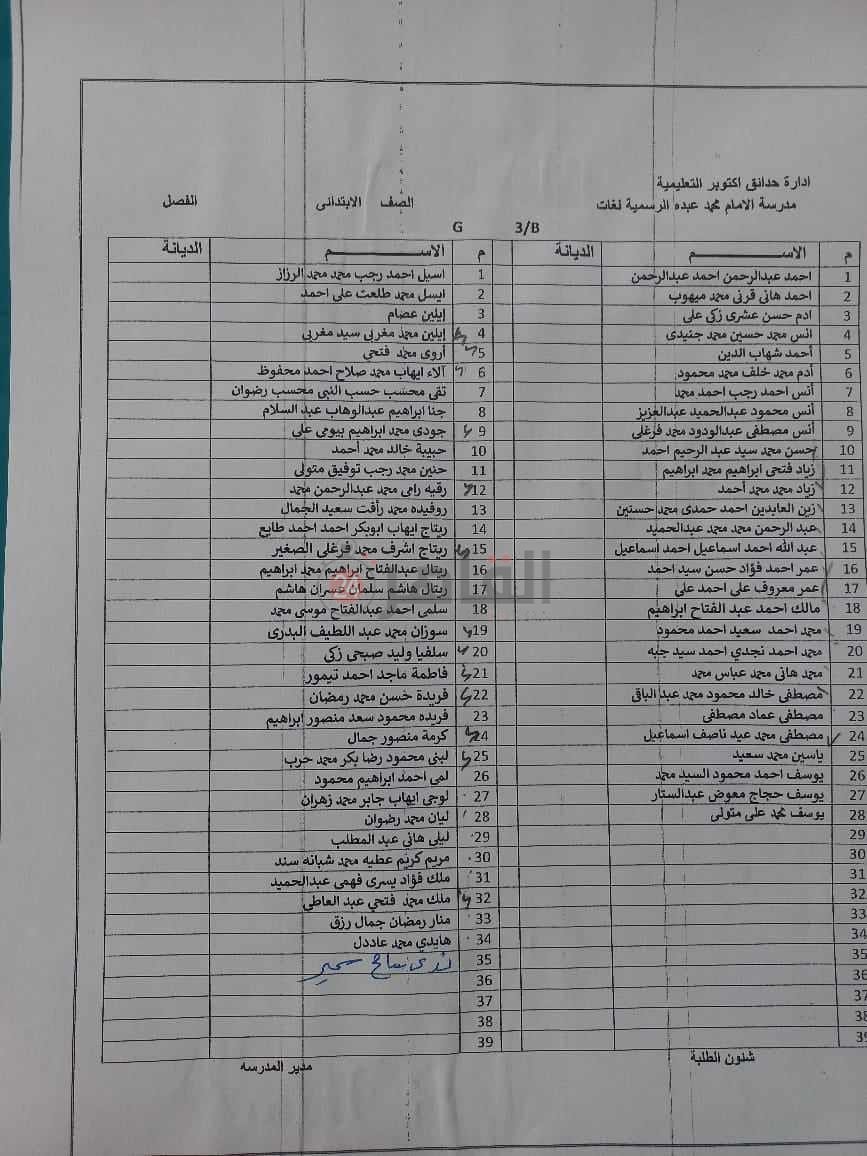 ادارة حدائق اكتوبر التعليمية
مدرسة الامام محمد عبده الرسمية لغات
الصف الابتدائى
الفصل
3/B
G
م الاســـم الديانة
1 احمد عبدالرحمن احمد عبدالرحمن
2 احمد هانى قرنى محمد ميهوب
3 ادم حسن عشرى زكى على
4 انس محمد حسين محمد جنيدى
5 أحمد شهاب الدين
6 أدم محمد خلف محمد محمود
7 أنس احمد رجب احمد محمد
8 أنس محمود عبدالحميد عبدالعزيز
9 أنس مصطفى عبدالودود محمد فرغلى
10 حسن محمد سيد عبد الرحيم احمد
11 زياد فتحى ابراهيم محمد ابراهيم
12 زياد محمد محمد أحمد
13 زين العابدين احمد حمدى محمد حسنين
14 عبد الرحمن محمد محمد عبدالحميد
15 عبد الله احمد اسماعيل احمد اسماعيل
16 عمر احمد فؤاد حسن سيد احمد
17 عمر معروف على احمد على
18 مالك احمد عبد الفتاح ابراهيم
19 محمد احمد سعيد احمد محمود
20 محمد احمد نجدي احمد سيد جبه
21 محمد هانى محمد عباس محمد
22 مصطفى خالد محمود محمد عبد الباقى
23 مصطفى عماد مصطفى
24 مصطفى محمد عيد ناصف اسماعيل
25 ياسين محمد سعيد
26 يوسف احمد محمود السيد محمد
27 يوسف حجاج معوض عبدالستار
28 يوسف محمد على متولى
29
30
31
32
33
34
35
36
37
38
39
شئون الطلبة
م الاســـم الديانة
1 اسيل احمد رجب محمد محمد الرزاز
2 ايسل محمد طلعت على احمد
3 إيلين عصام
4 إيلين محمد مغربى سيد مغربى
5 أروى محمد فتحي
6 آلاء ايهاب محمد صلاح احمد محفوظ
7 تقى محتسب حسب النبى محتسب رضوان
8 جنا ابراهيم عبدالوهاب عبد السلام
9 جودى محمد ابراهيم بيومى على
10 حبيبة خالد محمد أحمد
11 حنين محمد رجب توفيق متولى
12 رقيه رامى محمد عبدالرحمن محمد
13 روفيده محمد رأفت سعيد الجمال
14 ريتاج ايهاب ابوبكر احمد احمد طايع
15 ريتاج اشرف محمد فرغلى الصغير
16 ريتال عبدالفتاح ابراهيم محمد ابراهيم
17 ريتال هاشم سلمان خسران هاشم
18 سلمى احمد عبدالفتاح موسى محمد
19 سوزان محمد عبد اللطيف البدرى
20 سلفيا وليد صبحى زكى
21 فاطمة ماجد احمد تيمور
22 فريدة حسن محمد رمضان
23 فريده محمود سعد منصور ابراهيم
24 كرمة منصور جمال
25 لبنى محمود رضا بكر محمد حرب
26 لمى احمد ابراهيم محمود
27 لوجى ايهاب جابر محمد زهران
28 ليان محمد رضوان
29 ليلى هاني عبد المطلب
30 مريم كريم عطيه محمد شبانه سند
31 ملك فؤاد يسرى فهمى عبدالحميد
32 ملك محمد فتحي عبد العاطي
33 منار رمضان جمال رزق
34 هايدي محمد عاددل
35 ندى سامح سمير
36
37
38
39
مدير المدرسه
القاهرة 24